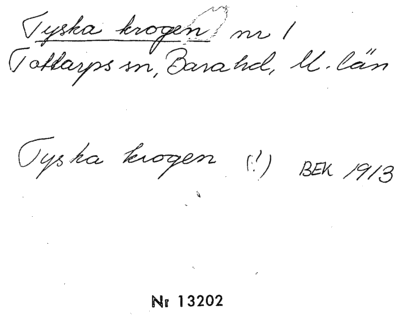 Tyska krogen nr 1
Tottarps sn, Bara hd, M. län
Tyska krogen (!) BEK 1913
Nr 13202